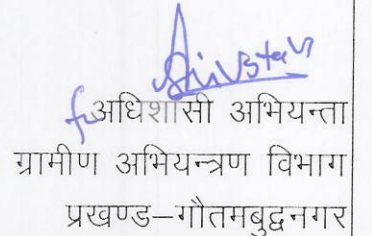 अधिशासी अभियन्ता
ग्रामीण अभियन्त्रण विभाग
प्रखण्ड–गौतमबुद्धनगर